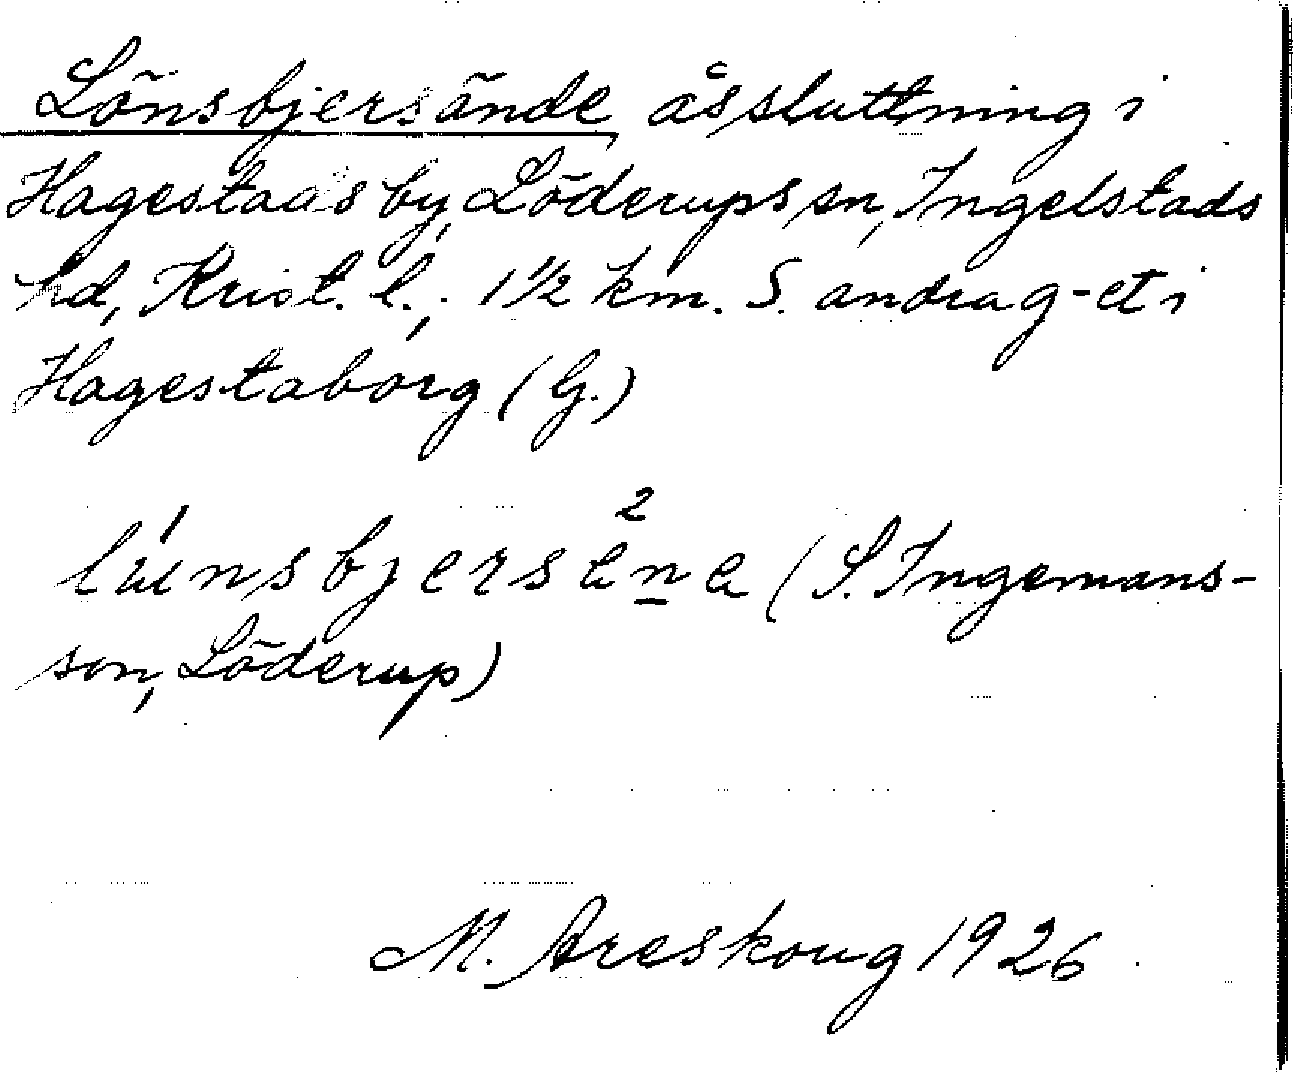 Lönsbjersände åssluttning i
Hagestads by, Löderups sn, Ingelstads
hd, Krist. l., 1 1/2 km. S. andra g-et i
Hagestaborg (G.)
(S. Ingemans-
son, Löderup)
M. Areskoug 1926